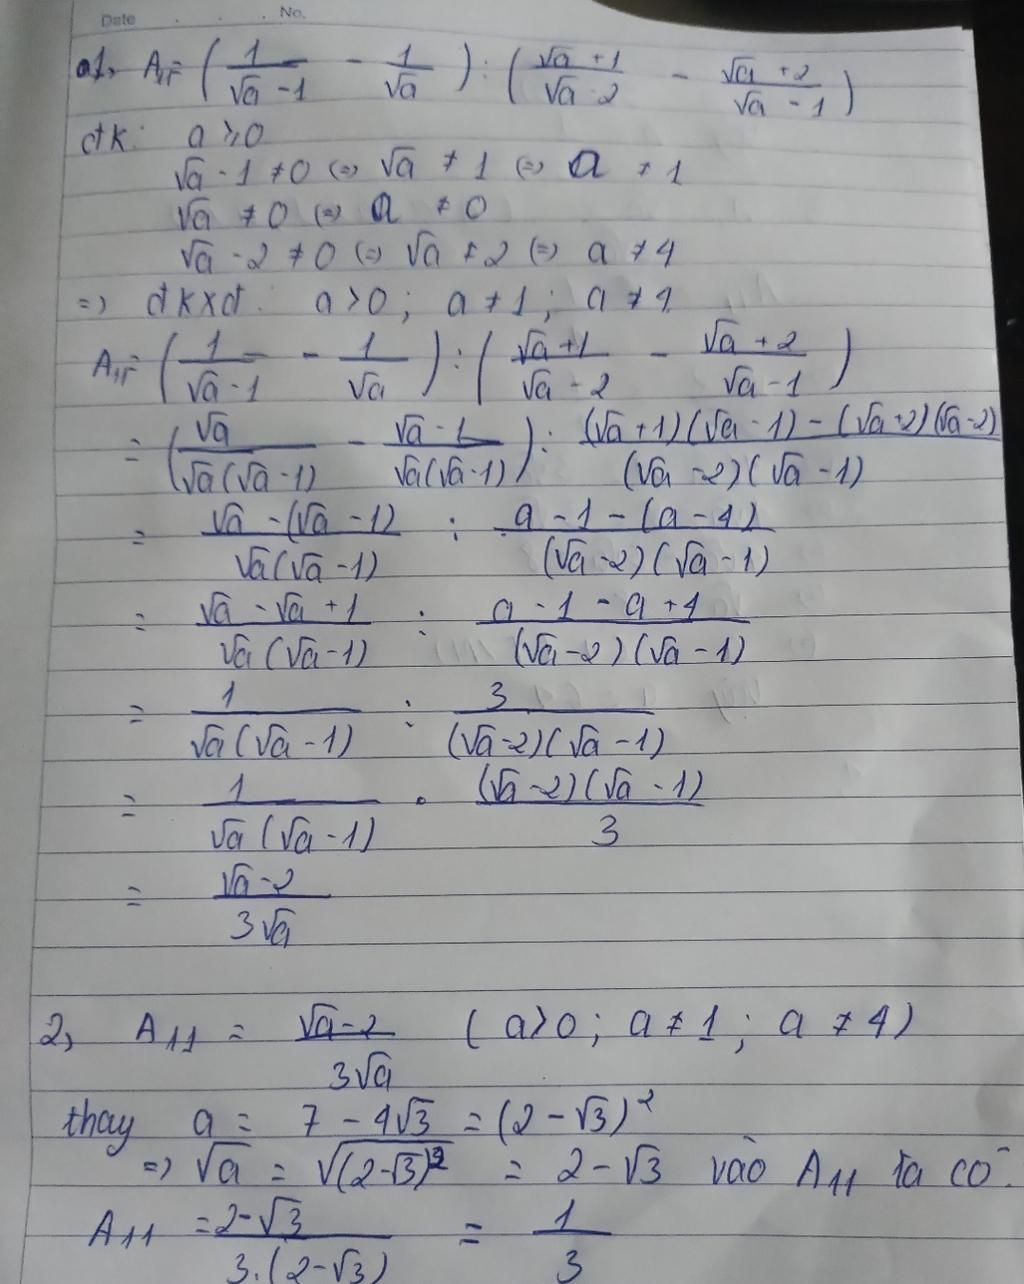 Date . . . No.
a1, A₁₁ = (1/(√a - 1) - 1/√a) : ((√a + 1)/(√a - 2) - (√a + 2)/(√a - 1))
đk: a ≥ 0
√a - 1 ≠ 0 (=) √a ≠ 1 (=) a ≠ 1
√a ≠ 0 (=) a ≠ 0
√a - 2 ≠ 0 (=) √a ≠ 2 (=) a ≠ 4
=) đkxđ: a > 0; a ≠ 1; a ≠ 4
A₁₁ = (1/(√a - 1) - 1/√a) : ((√a + 1)/(√a - 2) - (√a + 2)/(√a - 1))
= (√a/(√a(√a - 1)) - (√a - 1)/(√a(√a - 1))) : ((√a + 1)(√a - 1) - (√a + 2)(√a - 2))/((√a - 2)(√a - 1))
= (√a - (√a - 1))/(√a(√a - 1)) : (a - 1 - (a - 4))/((√a - 2)(√a - 1))
= (√a - √a + 1)/(√a(√a - 1)) : (a - 1 - a + 4)/((√a - 2)(√a - 1))
= 1/(√a(√a - 1)) : 3/((√a - 2)(√a - 1))
= 1/(√a(√a - 1)) . ((√a - 2)(√a - 1))/3
= (√a - 2)/(3√a)
2, A₁₁ = (√a - 2)/(3√a) (a > 0; a ≠ 1; a ≠ 4)
thay a = 7 - 4√3 = (2 - √3)²
=) √a = √(2 - √3)² = 2 - √3 vào A₁₁ ta có:
A₁₁ = (2 - √3)/(3.(2 - √3)) = 1/3